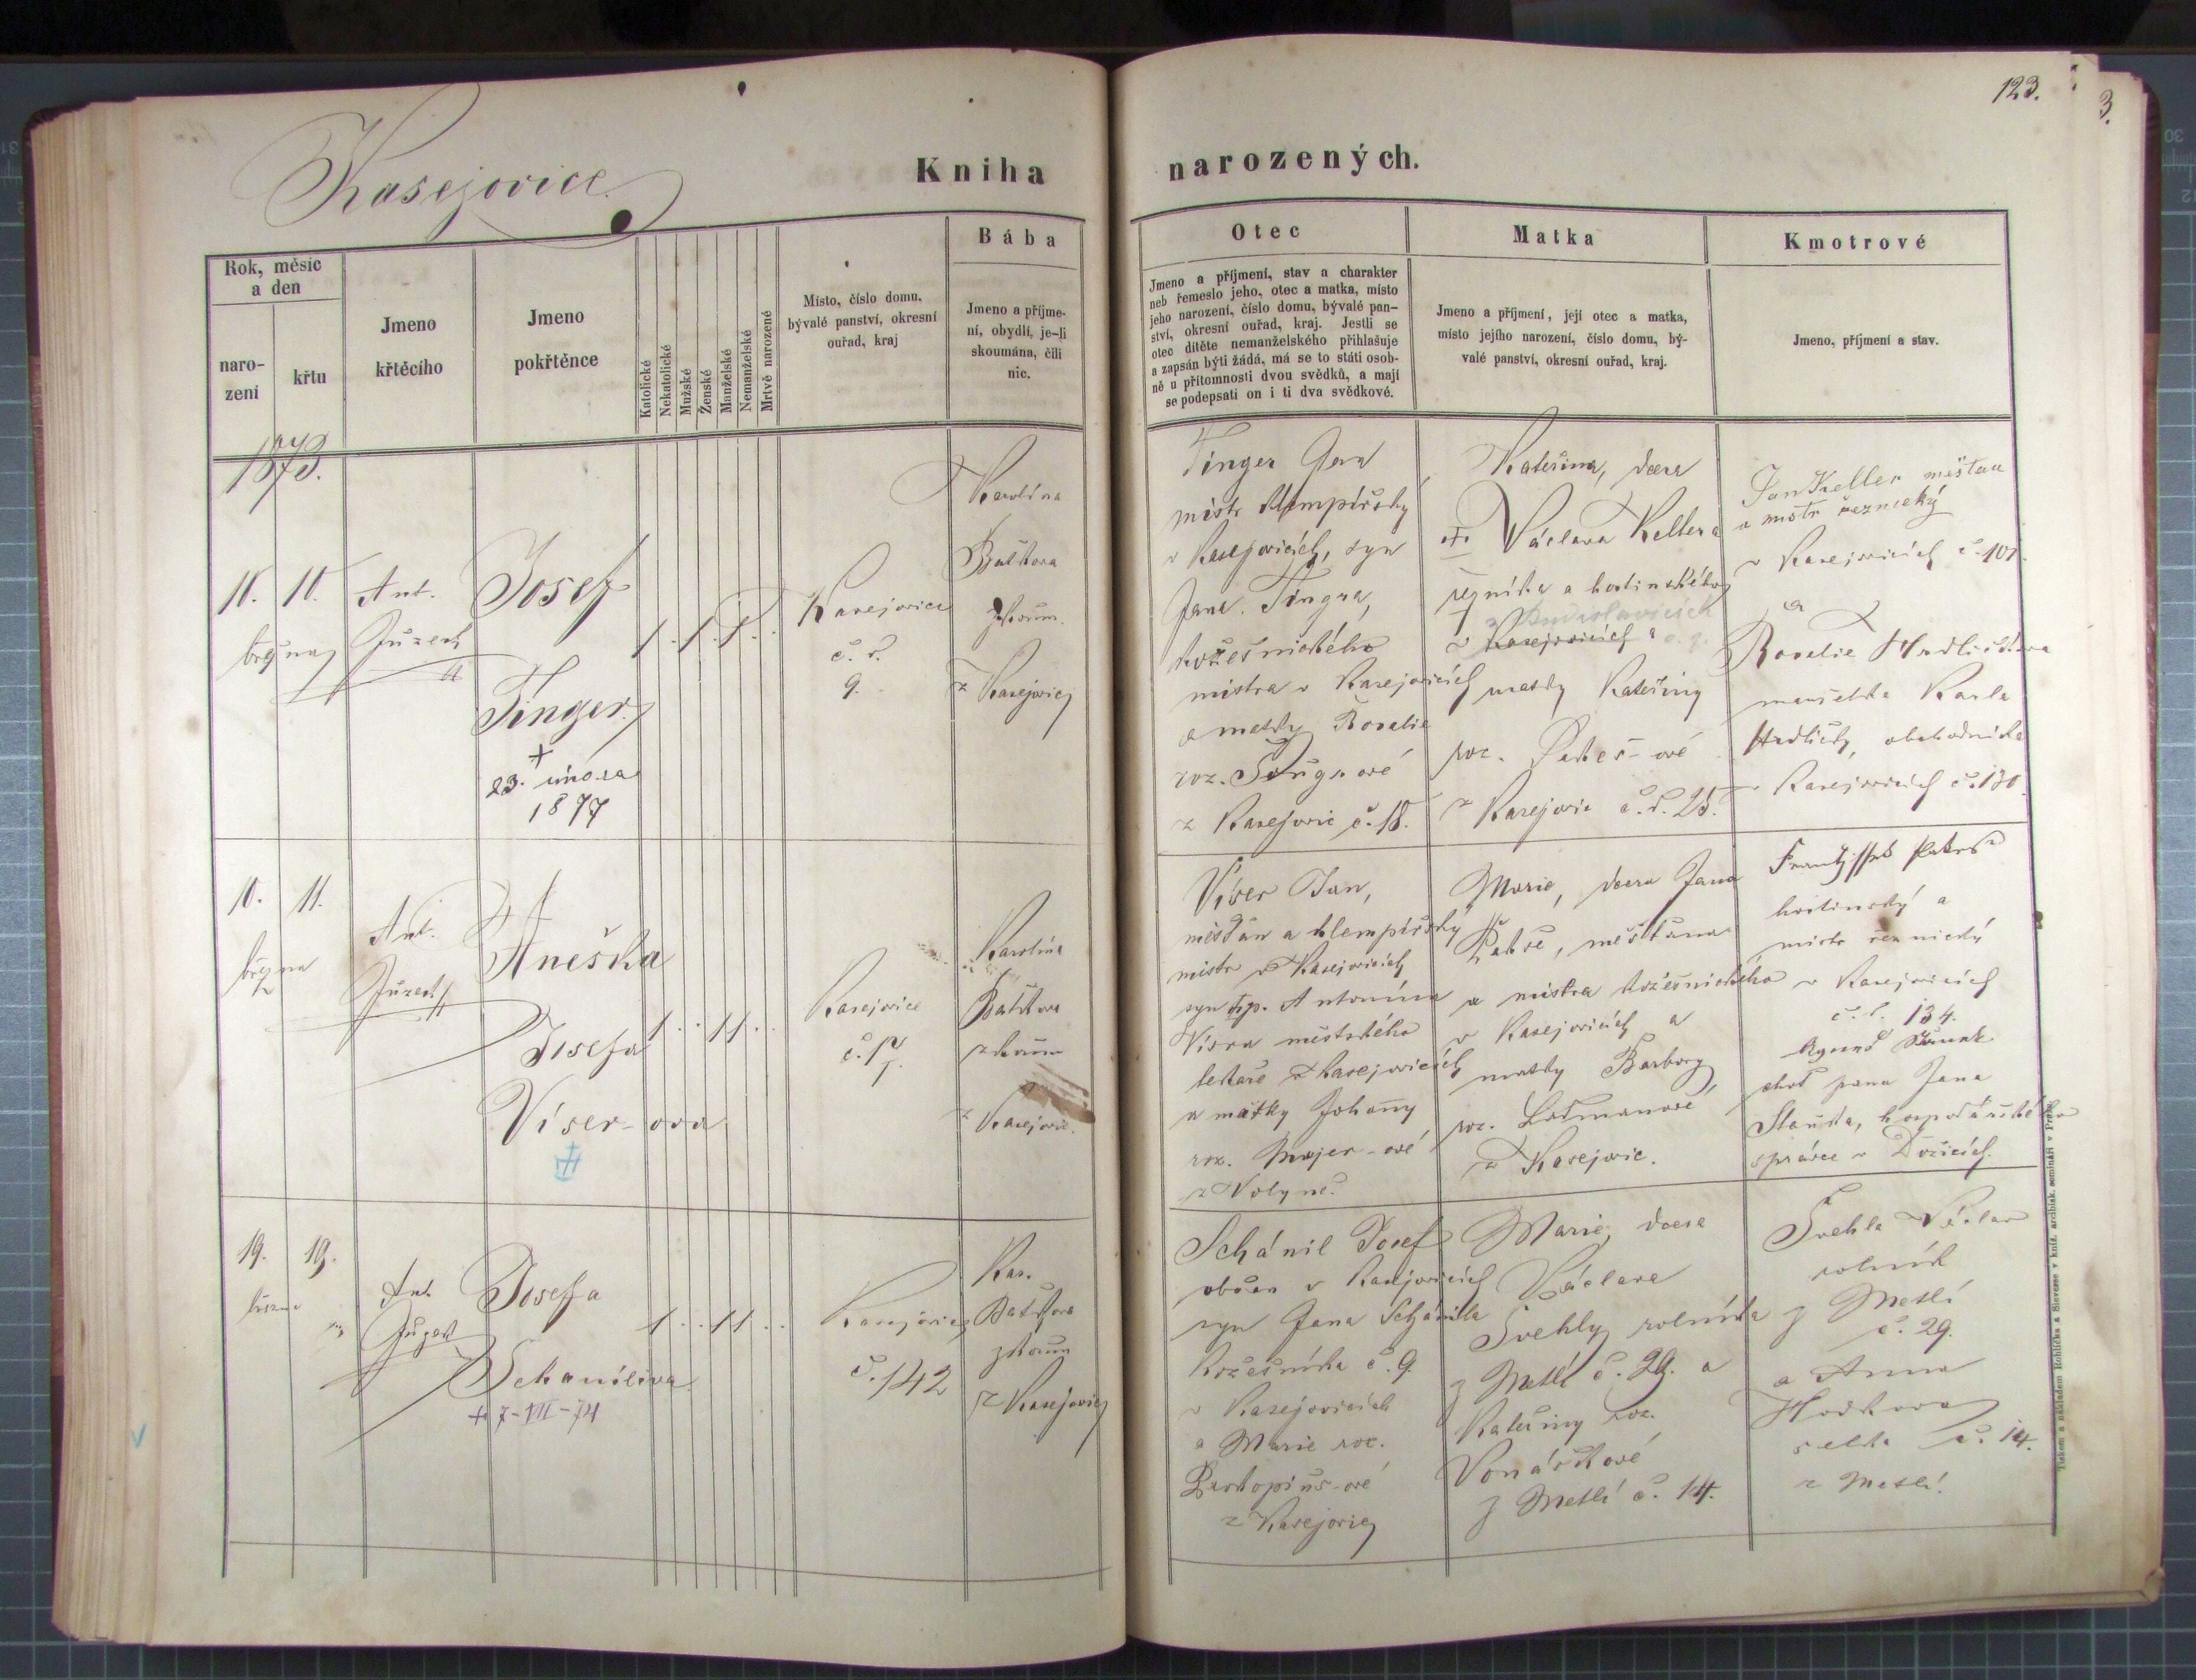 123.
3.
Kasejovice
Kniha narozených.
Rok, měsíc
a den
naro-
zení
křtu
Jmeno
křtěcího
Jmeno
pokřtěnce
Katolické
Nekatolické
Mužské
Ženské
Manželské
Nemanželské
Mrtvě narozené
Místo, číslo domu,
bývalé panství, okresní
ouřad, kraj
Bába
Jmeno a příjme-
ní, obydlí, je-li
skoumána, čili
nic.
Otec
Jmeno a příjmení, stav a charakter
neb řemeslo jeho, otec a matka, místo
jeho narození, číslo domu, bývalé pan-
ství, okresní ouřad, kraj. Jestli se
otec dítěte nemanželského přihlašuje
a zapsán býti žádá, má se to státi osob-
ně u přítomnosti dvou svědků, a mají
se podepsati on i ti dva svědkové.
Matka
Jmeno a příjmení, její otec a matka,
místo jejího narození, číslo domu, bý-
valé panství, okresní ouřad, kraj.
Kmotrové
Jmeno, příjmení a stav.
1873.
10. 10.
března
Ant.
Josef
Finger
+
23. února
1877
1 . 1 . 1 . .
Kasejovice
č. p.
9.
Karolína
Baštova
zkoum.
z Kasejovic
Finger Jan
mistr klempířský
v Kasejovicích, syn
Jana Fingra,
kožešnického
mistra v Kasejovicích
a matky Rosalie
roz.
z Kasejovic č. 18.
Kateřina, dcera
Václava Kellera
řezníka a hostinského
v Kasejovicích a
matky Kateřiny
roz.
z Kasejovic č. p. 25.
Jan Keller měšťan
a mistr řeznický
v Kasejovicích č. 101.
a
Rosalie Hrdličkova
manželka Karla
Hrdličky, obchodníka
v Kasejovicích č. 130.
10. 11.
března
Ant.
Aneška
Josefa
Víser-ova
1 . . 1 1 . .
Kasejovice
č. 7
Karolína
Baštova
zkoum
z Kasejovic.
Víser Jan,
měšťan a klempířský
mistr v Kasejovicích
syn Antonína
Vísra městského
lékaře v Kasejovicích
a matky Johany
roz. Majer-ové
z Volyně.
Marie, dcera Jana
měšťana
a mistra kožešnického
v Kasejovicích a
matky Barbory,
roz.
z Kasejovic.
hostinský a
mistr řeznický
v Kasejovicích
č. p. 134.
choť pana Jana
Staňka, hospodářského
správce v Dožicích.
19. 19.
března
Ant.
Josefa
Schanilova
+ 7-VII-74
1 . . 1 1 . .
Kasejovice
č. 142
Kar.
Baštova
zkoum
z Kasejovic
Schánil Josef
občan v Kasejovicích
syn Jana Schánila
kožešníka č. 9.
v Kasejovicích
a Marie roz.
Prokopius-ové
z Kasejovic
Marie, dcera
Václava
Švehly rolníka
z Metlí č. 29. a
Kateřiny roz.
Vonáškové
z Metlí č. 14.
Švehla Václav
rolník
z Metlí
č. 29.
a Anna
Hodkova
selka č. 14.
z Metlí.
Tiskem a nákladem Rohlíčka & Sieversse v kníž. arcibisk. semináři v Praze.